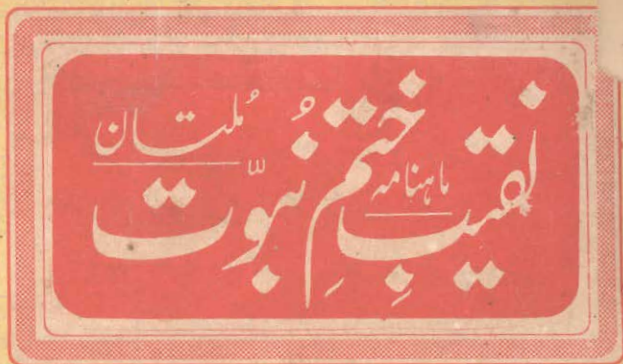 ماہنامہ
نقیبِ ختمِ نُبوّت
مُلتان